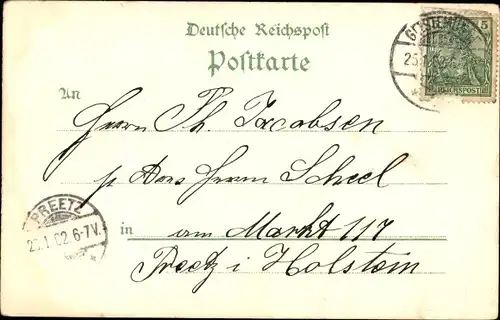 Deutsche Reichspost
Postkarte
An
Herrn Th. Jacobsen
p Adrs Herrn Scheel
in am Markt 117
Preetz i Holstein
5
REICHSPOST
PREETZ
25.1.02.6-7V.